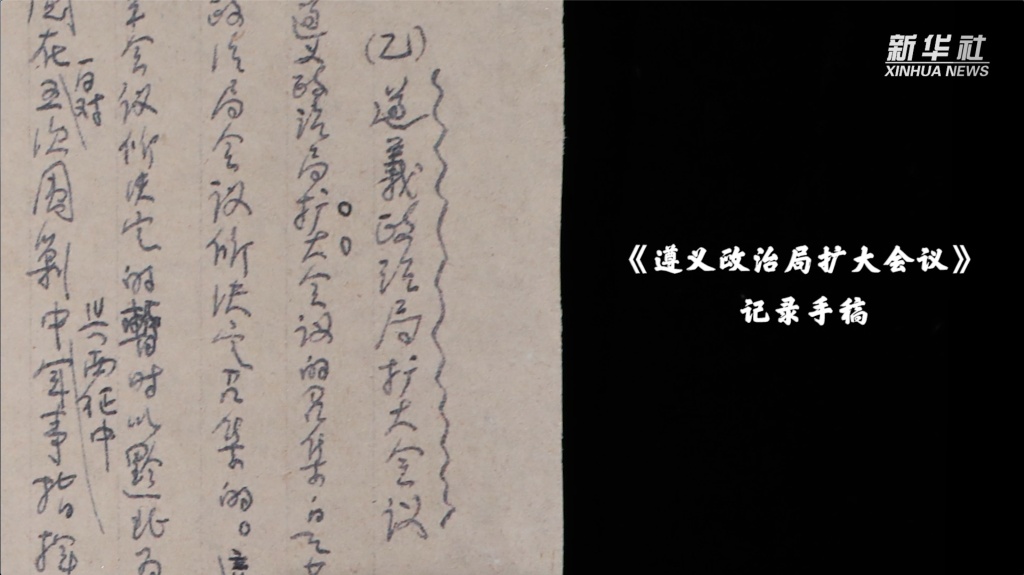 新华社
XINHUA NEWS
(乙)遵義政治局扩大会议
遵义政治局扩大会议的召集
政治局会议所决定召集的。
会议所决定的暂时以黔北为
对
与西征中
在五次围剿中军事指挥
《遵义政治局扩大会议》
记录手稿